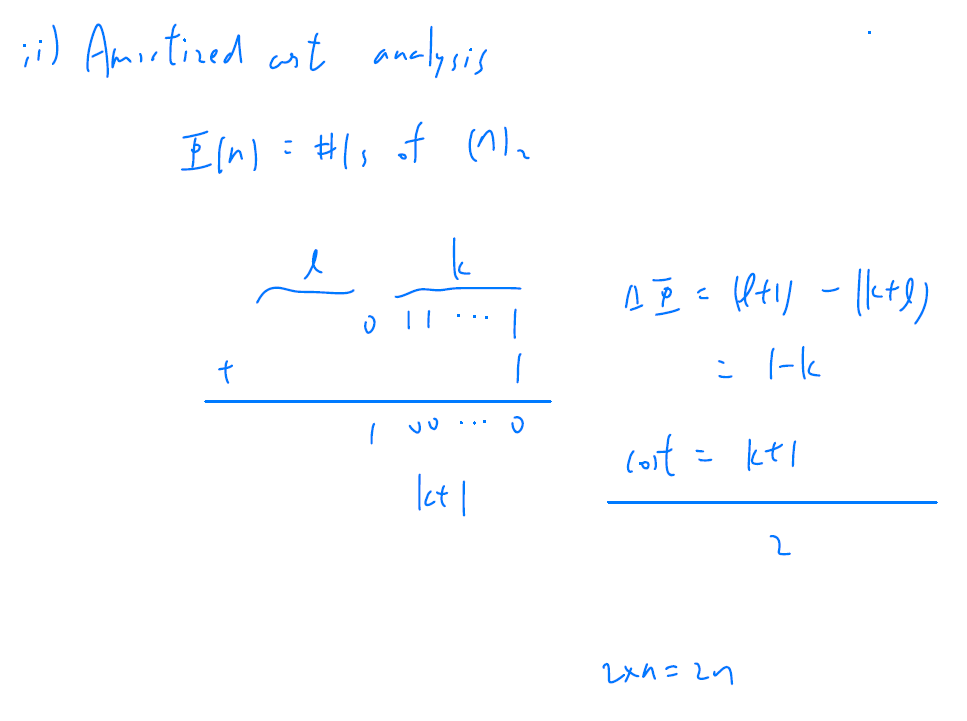 ii) Amortized cost analysis
Φ(n) = #1s of (n)₂
l k
0 1 1 ⋯ 1
+ 1
1 0 0 ⋯ 0
k+1
ΔΦ = (l+1) - (k+l)
= 1-k
cost = k+1
2
2×n = 2n